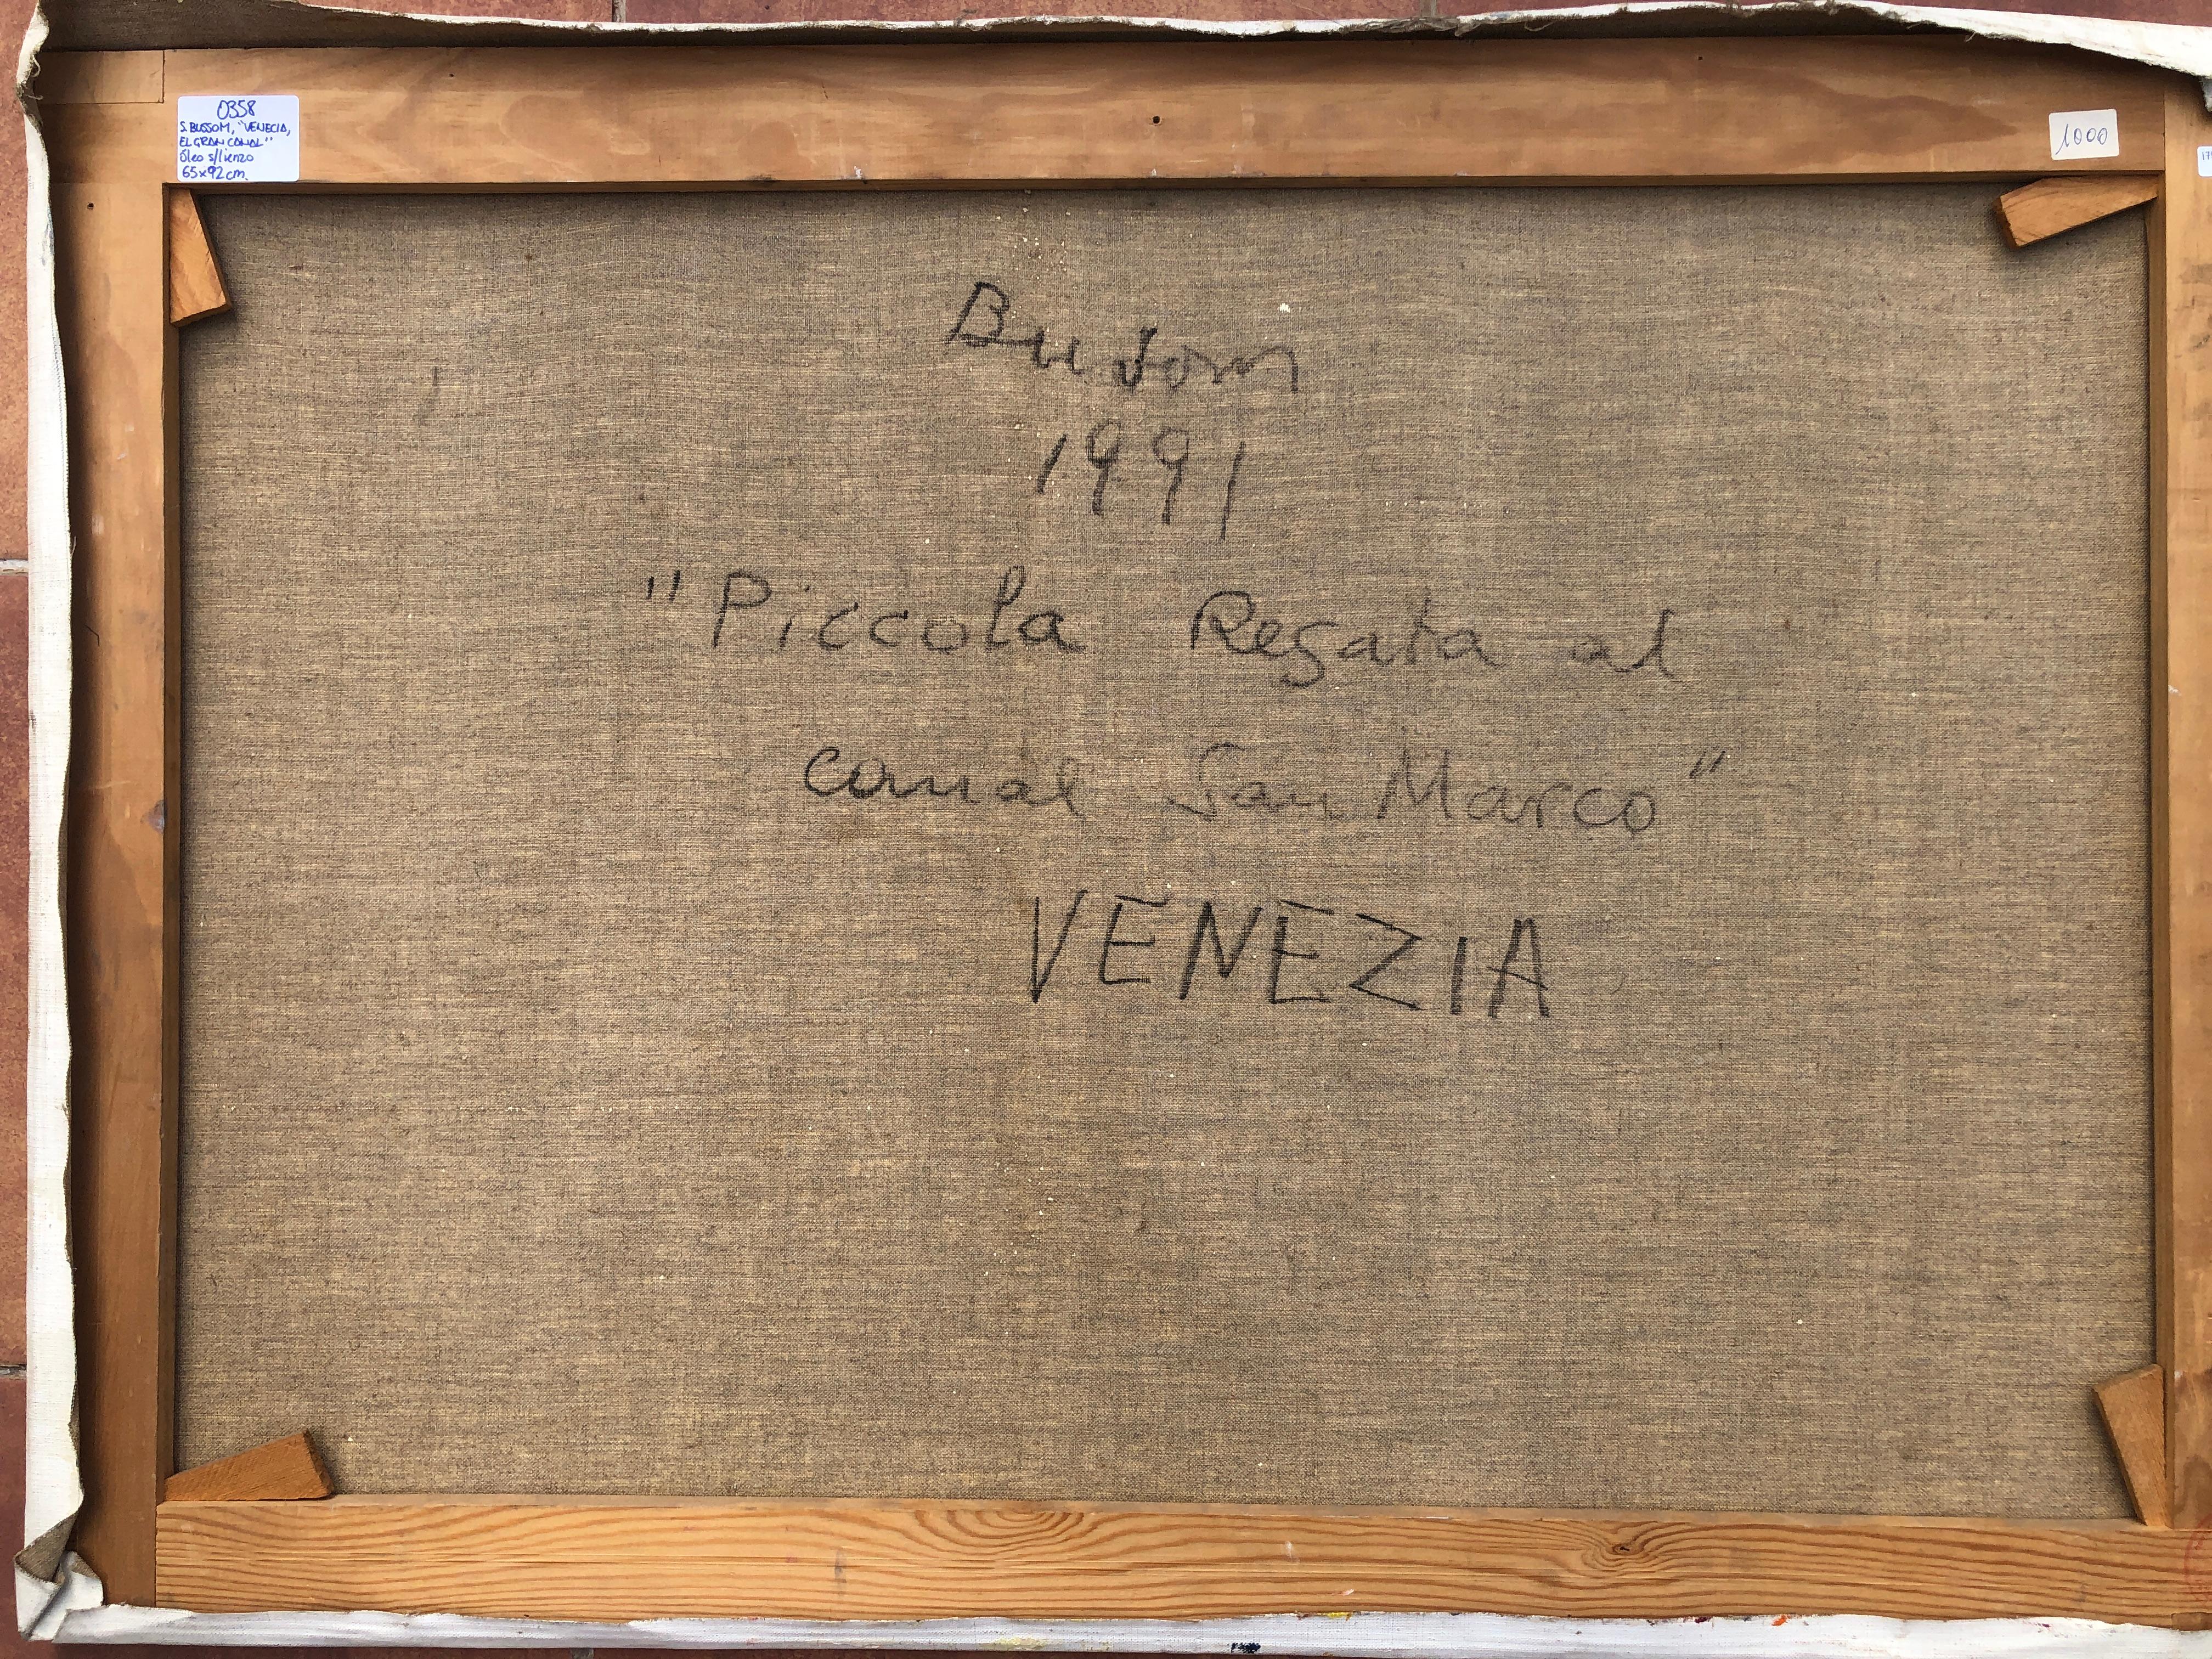 0358
S. BUSSOM, "VENECIA,
EL GRAN CANAL"
óleo s/lienzo
65x92cm.
1000
17
Bussom
1991
"Piccola Regata al
canal San Marco"
VENEZIA